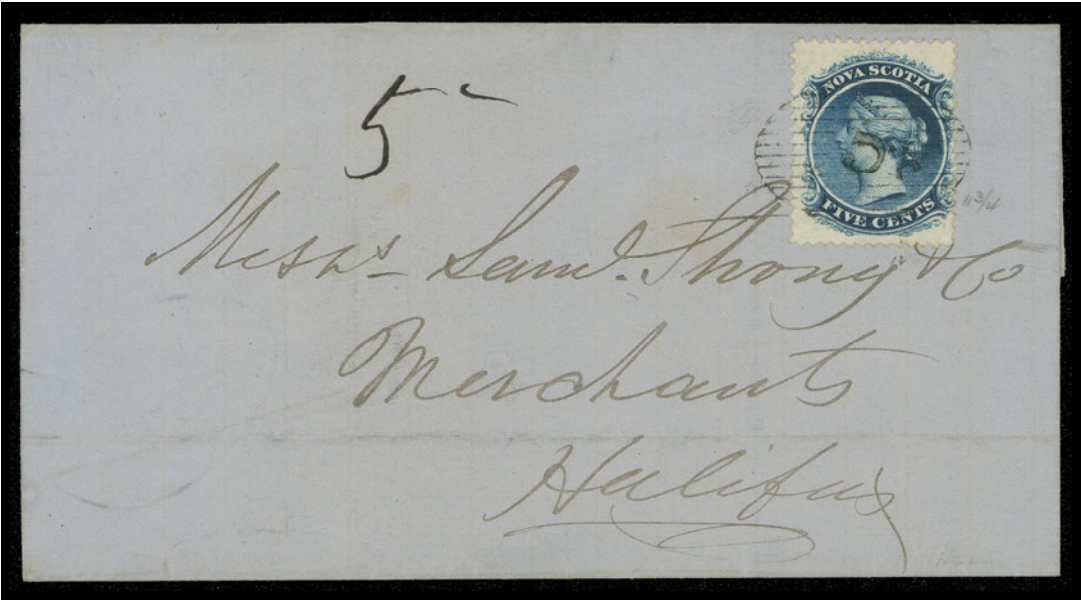 5
NOVA SCOTIA
5
FIVE CENTS
11 3/4
Messrs Saml. Strong & Co
Merchants
Halifax